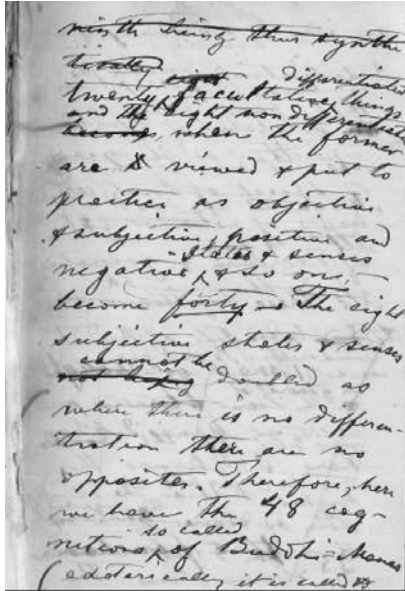 ninth being thus synthe
tically eight differentiated
twenty facultative things
and the eight non differentiated
become, where the former
are viewed & put to
practice as objective
& subjective, positive and
negative, states & senses & so on—
become forty — The eight
subjective states & senses
not being cannot be doubled as
where there is no differen-
tiation there are no
opposites. Therefore, here
we have the 48 cog-
nitions, so called of Buddhi-Manas
(exoterically it is called